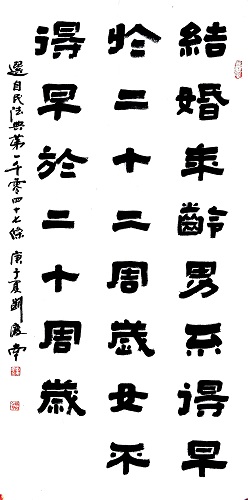 結婚年齡男不得早
扵二十二周歲女不
得早於二十周歲
選自民法典第一千零四十七條 庚子夏